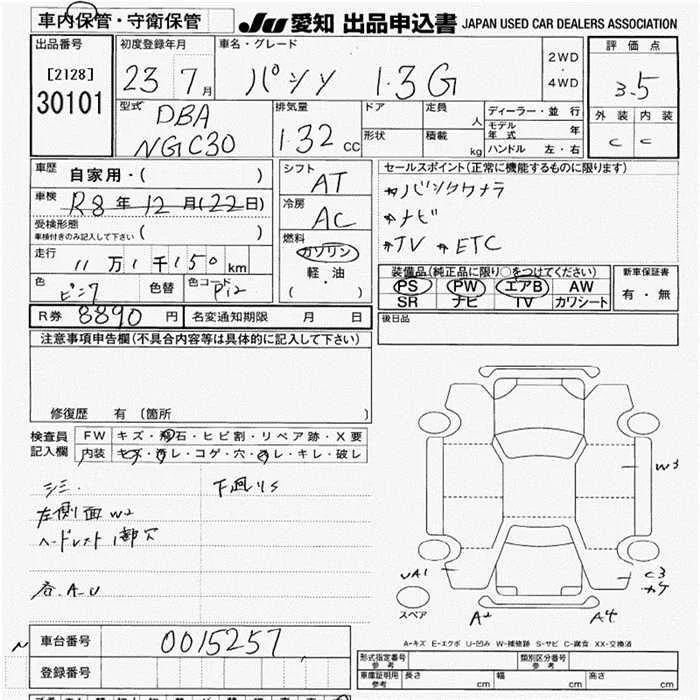 車内保管・守衛保管
JU 愛知 出品申込書 JAPAN USED CAR DEALERS ASSOCIATION
出品番号 [2128] 30101
初度登録年月 23 7月
車名・グレード パッソ 1.3G
2WD・4WD
評価点 3.5
外装 内装
C C
型式 DBA NGC30
排気量 1.32 cc
ドア 定員 人
形状 積載 kg
ディーラー・並行
モデル年式 年
ハンドル 左・右
車歴 自家用・( )
車検 R8年12月(22日)
受検形態 車検付きのみ記入して下さい ( )
走行 11万1千150km
色 ピンク 色替 色コード
R券 8890円 名変通知期限 月 日
シフト AT
冷房 AC
燃料 ガソリン 軽・油 ・( )
セールスポイント(正常に機能するものに限ります)
#バックカメラ
#ナビ
#TV #ETC
装備品(純正品に限り○をつけてください)
PS PW エアB AW
SR ナビ TV カワシート
新車保証書 有・無
後日品
注意事項申告欄(不具合内容等は具体的に記入して下さい)
修復歴 有 (箇所 )
検査員記入欄
FW キズ・飛石・ヒビ割・リペア跡・X要
内装 キズ・汚レ・コゲ・穴・スレ・キレ・破レ
シミ 下廻りS
左側面W2
ヘッドレスト1部穴
各.A.U
W3
UA1
C3
カケ
スペア
A2
A4
A-キズ E-エクボ U-凹み W-補修跡 S-サビ C-腐食 XX-交換済
車台番号 0015257
登録番号
形式指定番号 参考 類別区分番号 参考
車庫証明用 参考 長さ cm 幅 cm 高さ cm